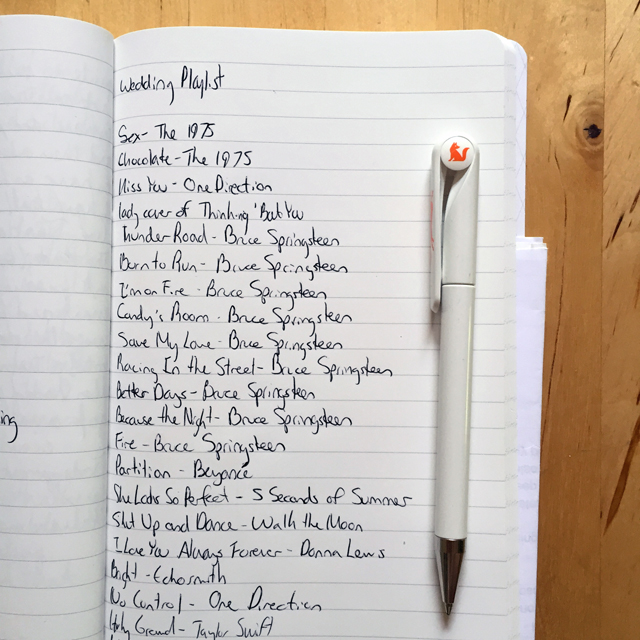 Wedding Playlist
Sex - The 1975
Chocolate - The 1975
Miss You - One Direction
lady cover of Thinking 'Bout You
Thunder Road - Bruce Springsteen
Born to Run - Bruce Springsteen
I'm on Fire - Bruce Springsteen
Candy's Room - Bruce Springsteen
Save My Love - Bruce Springsteen
Racing In the Street - Bruce Springsteen
Better Days - Bruce Springsteen
Because the Night - Bruce Springsteen
Fire - Bruce Springsteen
Partition - Beyoncé
She Looks So Perfect - 5 Seconds of Summer
Shut Up and Dance - Walk the Moon
I Love You Always Forever - Donna Lewis
Bright - Echosmith
No Control - One Direction
Holy Ground - Taylor Swift
ing